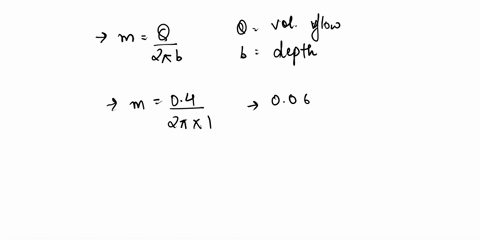 → m = Q / 2πb    Q = vol. flow
b = depth
→ m = 0.4 / 2π × 1    → 0.06